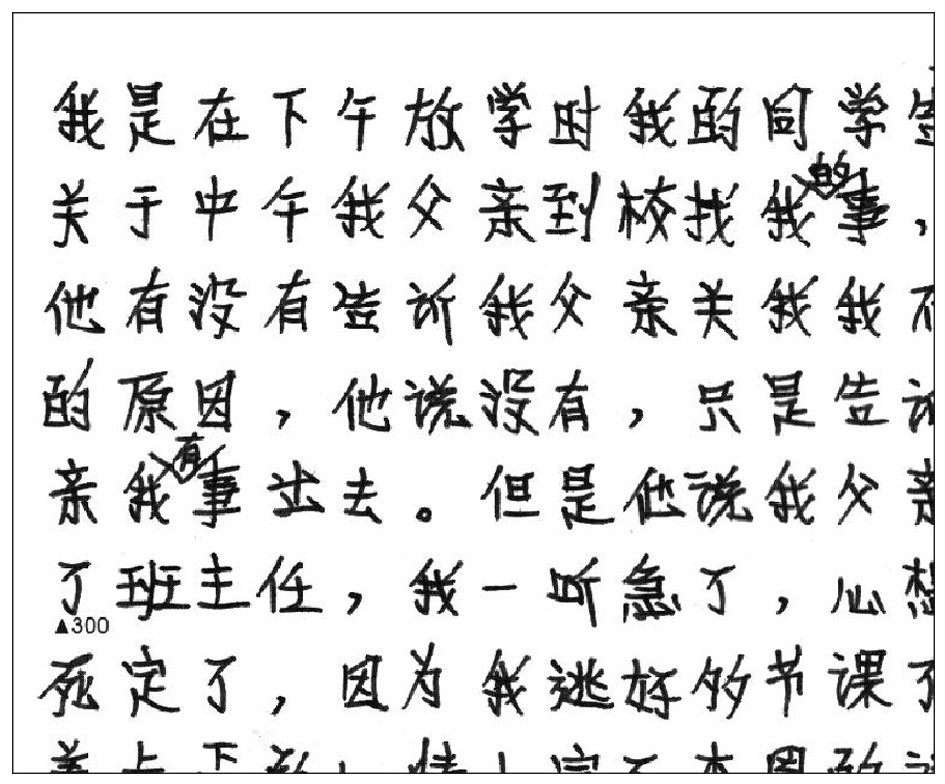 我是在下午放学时我的同学告
关于中午我父亲到校找我的事，
他有没有告诉我父亲关我我不
的原因，他说没有，只是告诉
亲我有事出去。但是他说我父亲
了班主任，我一听急了，心想
▲300
死定了，因为我逃好多节课了